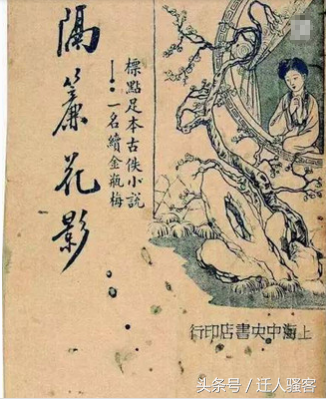 隔簾花影
標點足本古佚小説
——:一名續金瓶梅
行印店書央中海上
头条号／迁人骚客